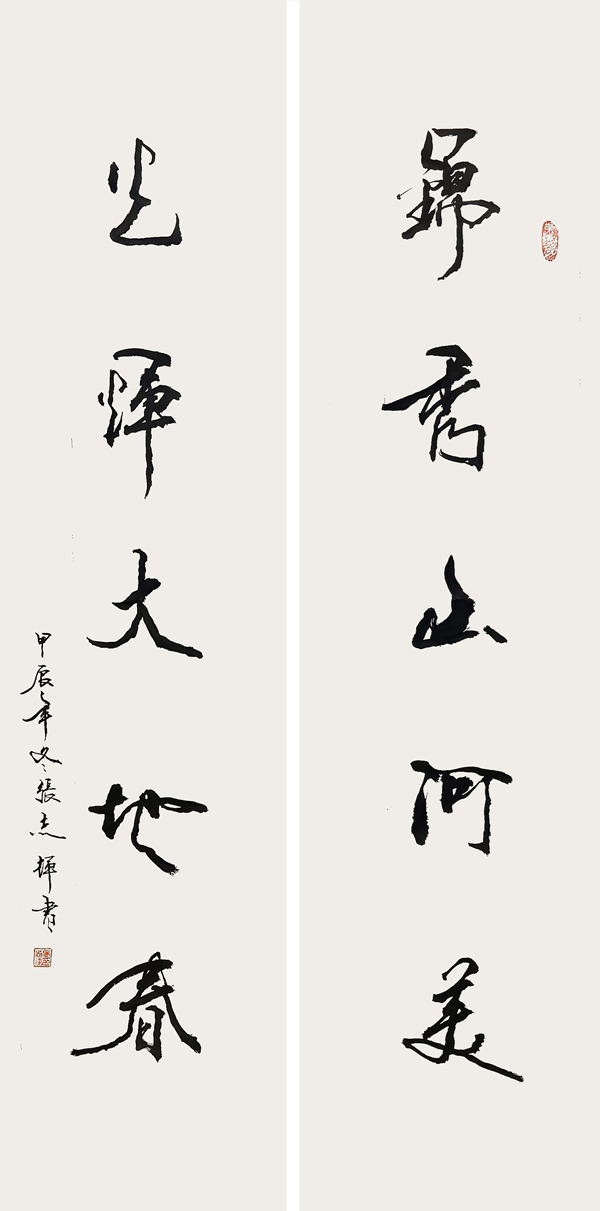 錦秀山河美
光輝大地春
甲辰年冬張志輝書